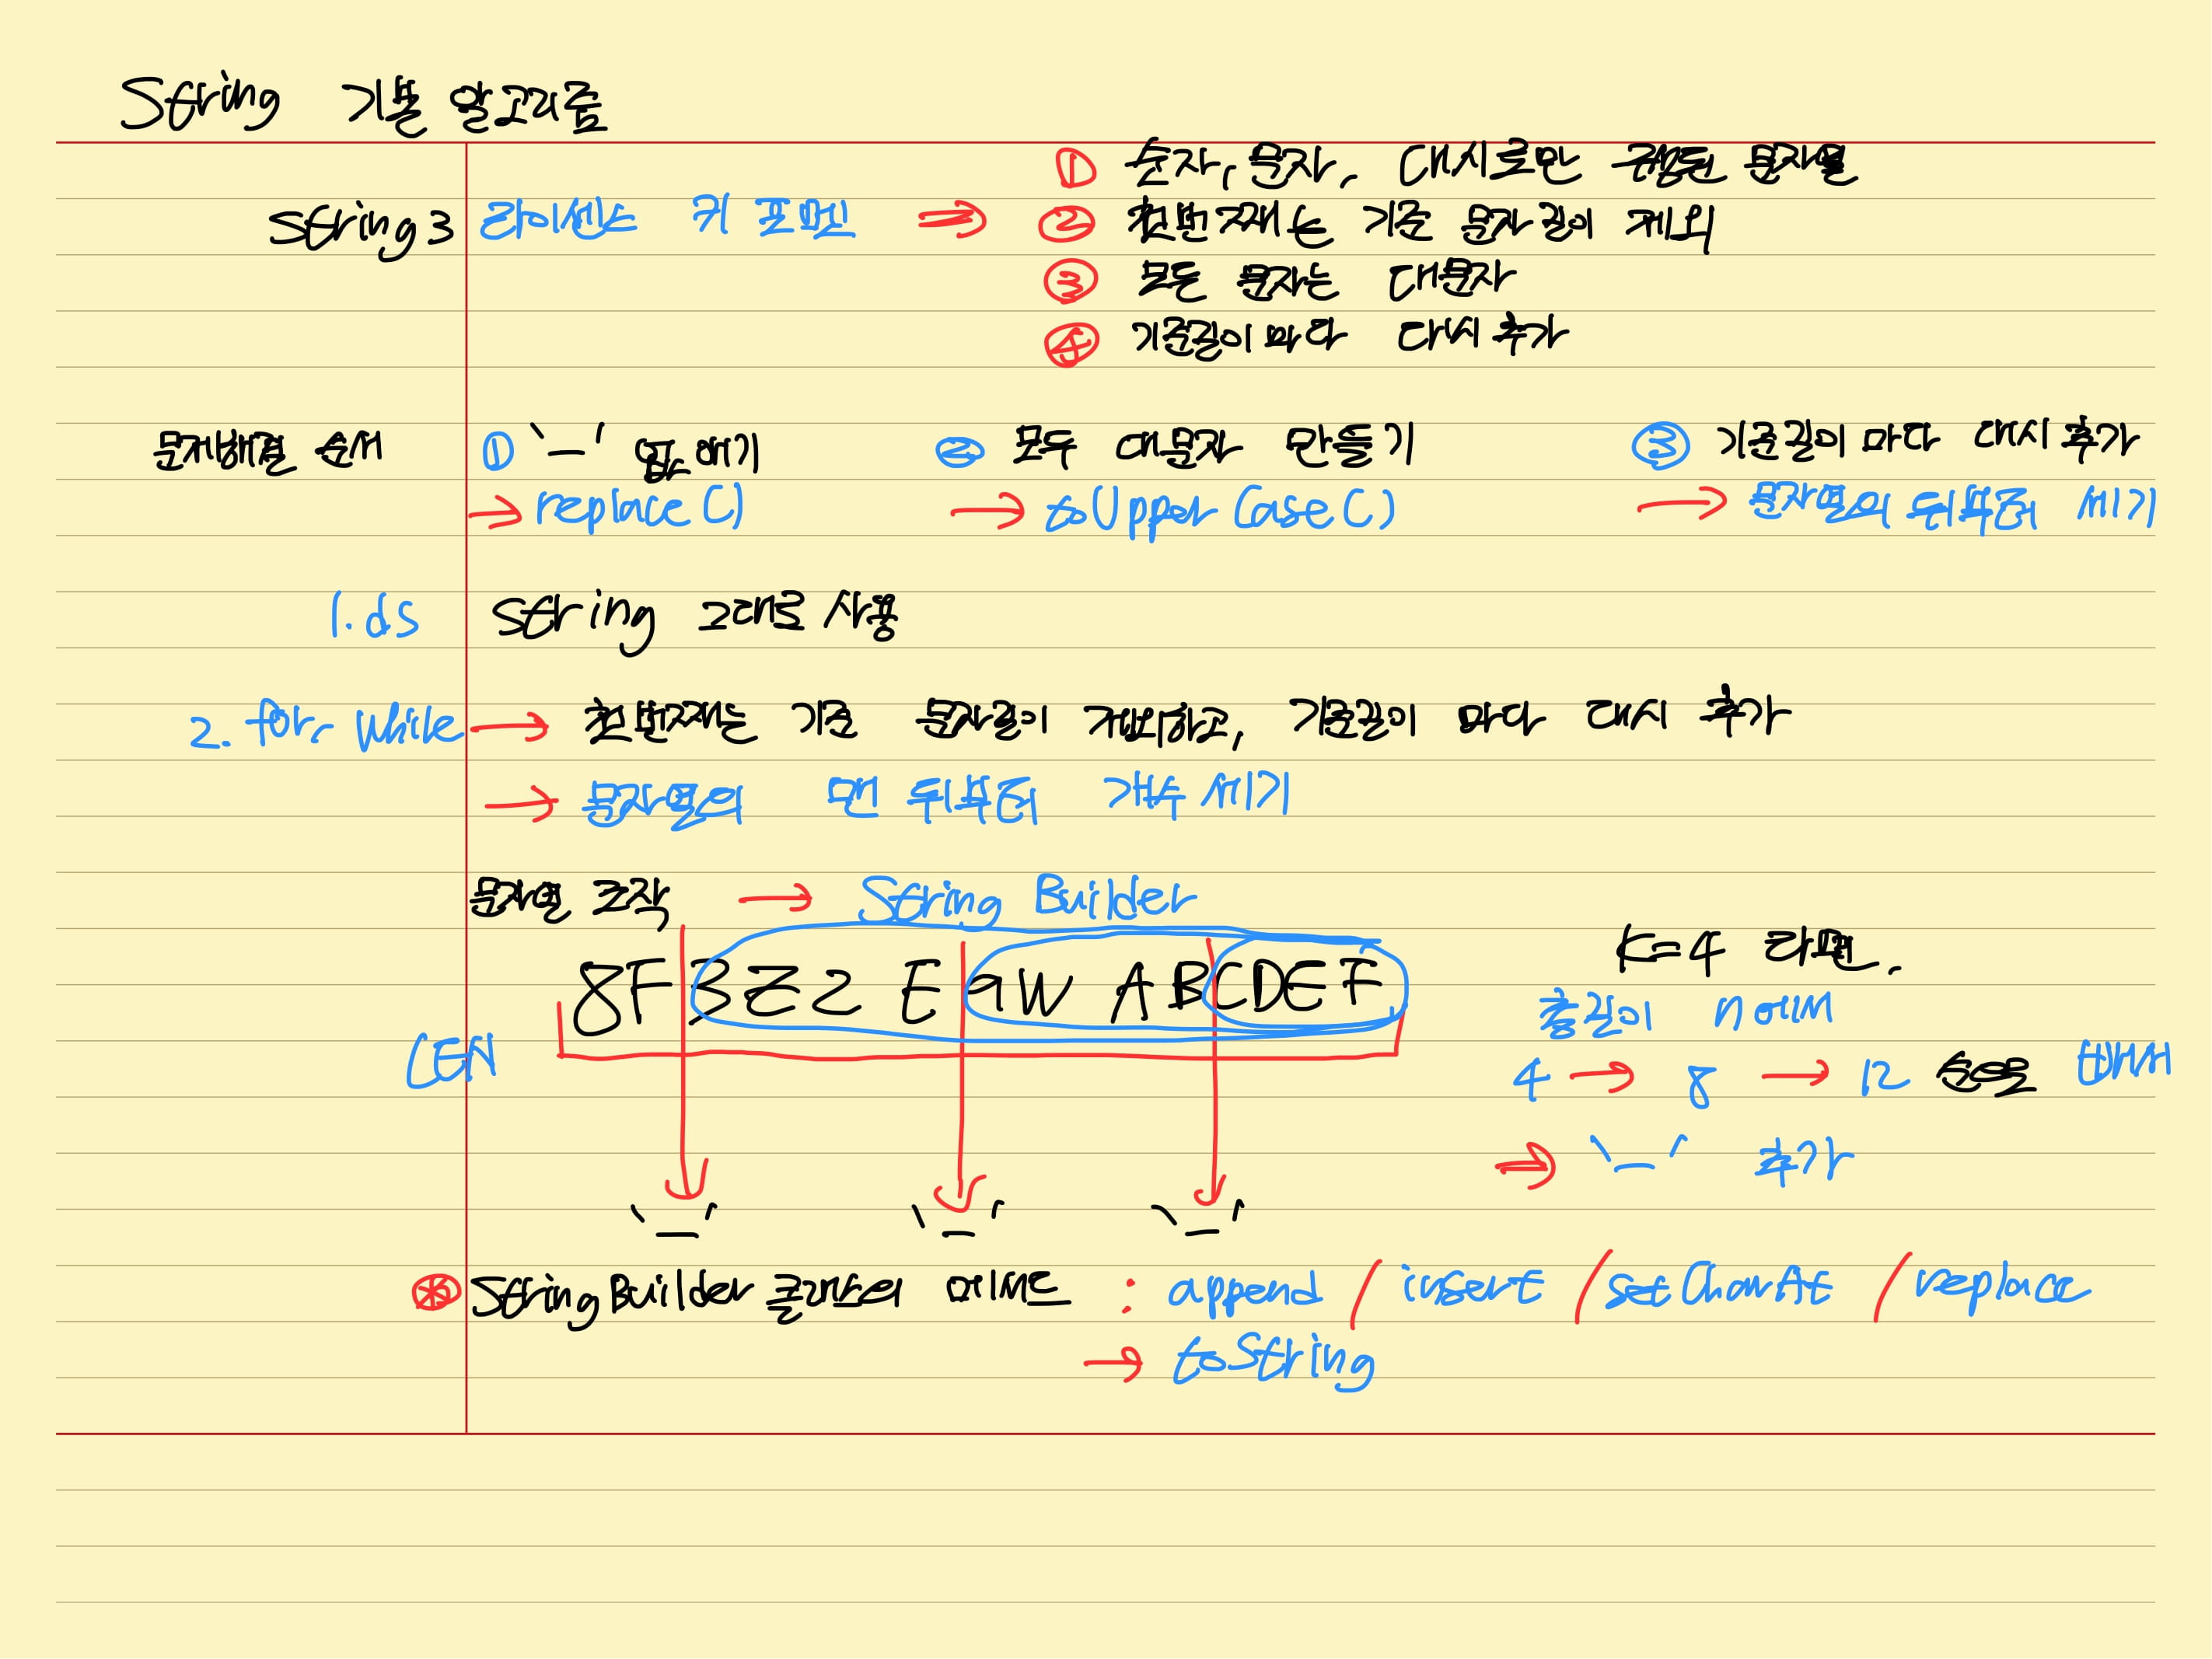 String 기본 알고리즘
① 숫자, 문자, 대시로만 구성된 문자열
String 3 라이센스 키 포맷 ⇒ ② 첫번째는 기준 문자 길이 제외
③ 모든 문자는 대문자
④ 기준길이마다 대시 추가
문제해결 순서 ① '-' 없애기 ② 모두 대문자 만들기 ③ 기준길이 마다 대시 추가
→ replace() → toUpperCase() → 문자열의 뒤부터 세기
1. ds String 그대로 사용
2. for, while → 첫번째는 기준 문자길이 제외하고, 기준길이 마다 대시 추가
→ 문자열의 맨 뒤부터 개수 세기
문자열 조작 → String Builder
K=4 라면,
8F3Z2E9WABCDEF
총길이 N에서
LEN
4 → 8 → 12 순으로 빼서
⇒ '-' 추가
'-' '-' '-'
StringBuilder 클래스의 메서드 : append / insert / setCharAt / replace
→ toString